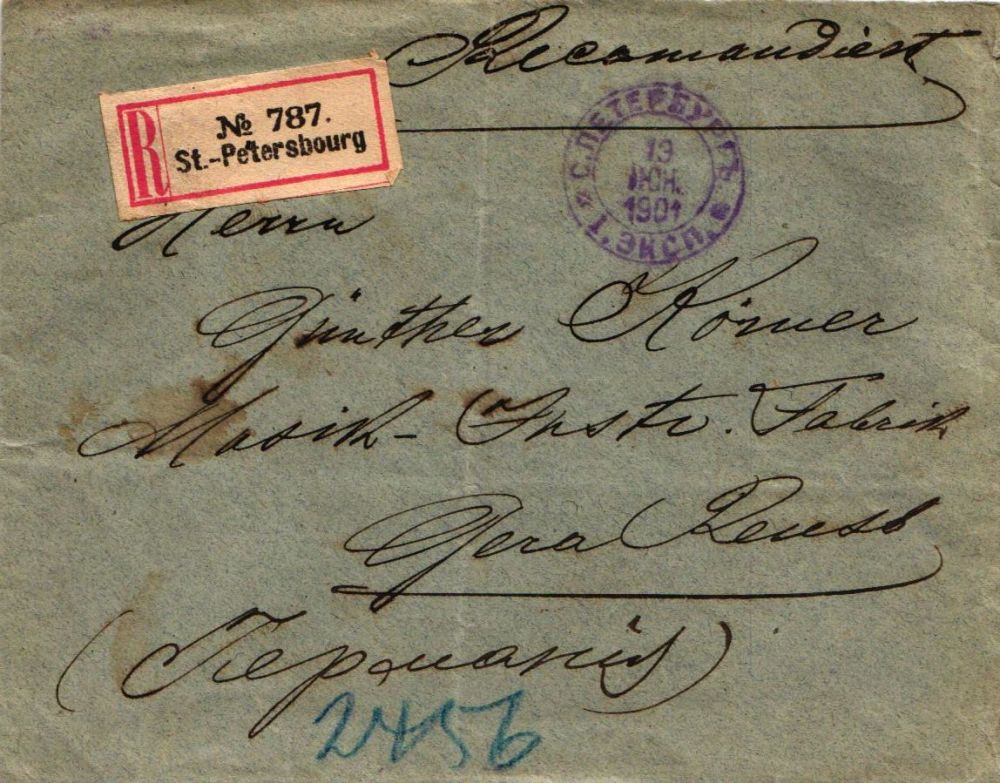 Recomandirt
R
№ 787.
St.-Petersbourg
С.ПЕТЕРБУРГЪ.
13
ІЮН.
1901
1. ЭКСП.
Herrn
Günther Körner
Musik- Instr. Fabrik
Gera Reuss
(Германія)
2456